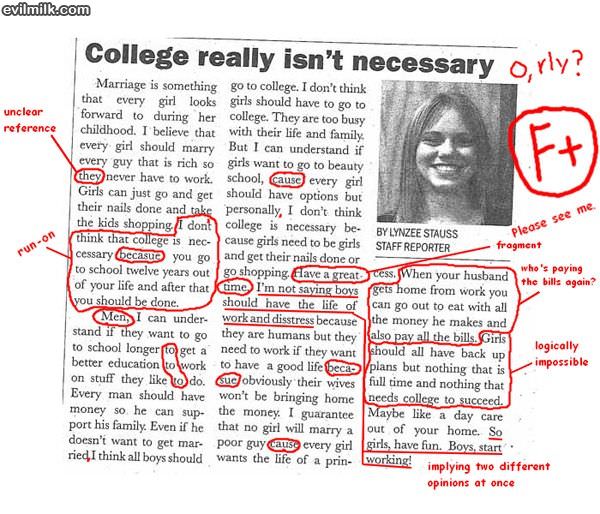 evilmilk.com
College really isn't necessary
o,rly?
F+
Please see me.
Marriage is something
that every girl looks
forward to during her
childhood. I believe that
every girl should marry
every guy that is rich so
they never have to work.
Girls can just go and get
their nails done and take
the kids shopping. I don't
think that college is nec-
cessary becasue you go
to school twelve years out
of your life and after that
you should be done.
Men, I can under-
stand if they want to go
to school longer to get a
better education to work
on stuff they like to do.
Every man should have
money so he can sup-
port his family. Even if he
doesn't want to get mar-
ried, I think all boys should
go to college. I don't think
girls should have to go to
college. They are too busy
with their life and family.
But I can understand if
girls want to go to beauty
school, cause every girl
should have options but
personally, I don't think
college is necessary be-
cause girls need to be girls
and get their nails done or
go shopping. Have a great
time. I'm not saying boys
should have the life of
work and disstress because
they are humans but they
need to work if they want
to have a good life beca-
sue obviously their wives
won't be bringing home
the money. I guarantee
that no girl will marry a
poor guy cause every girl
wants the life of a prin-
BY LYNZEE STAUSS
STAFF REPORTER
cess. When your husband
gets home from work you
can go out to eat with all
the money he makes and
also pay all the bills. Girls
should all have back up
plans but nothing that is
full time and nothing that
needs college to succeed.
Maybe like a day care
out of your home. So
girls, have fun. Boys, start
working!
unclear
reference
run-on
fragment
who's paying
the bills again?
logically
impossible
implying two different
opinions at once